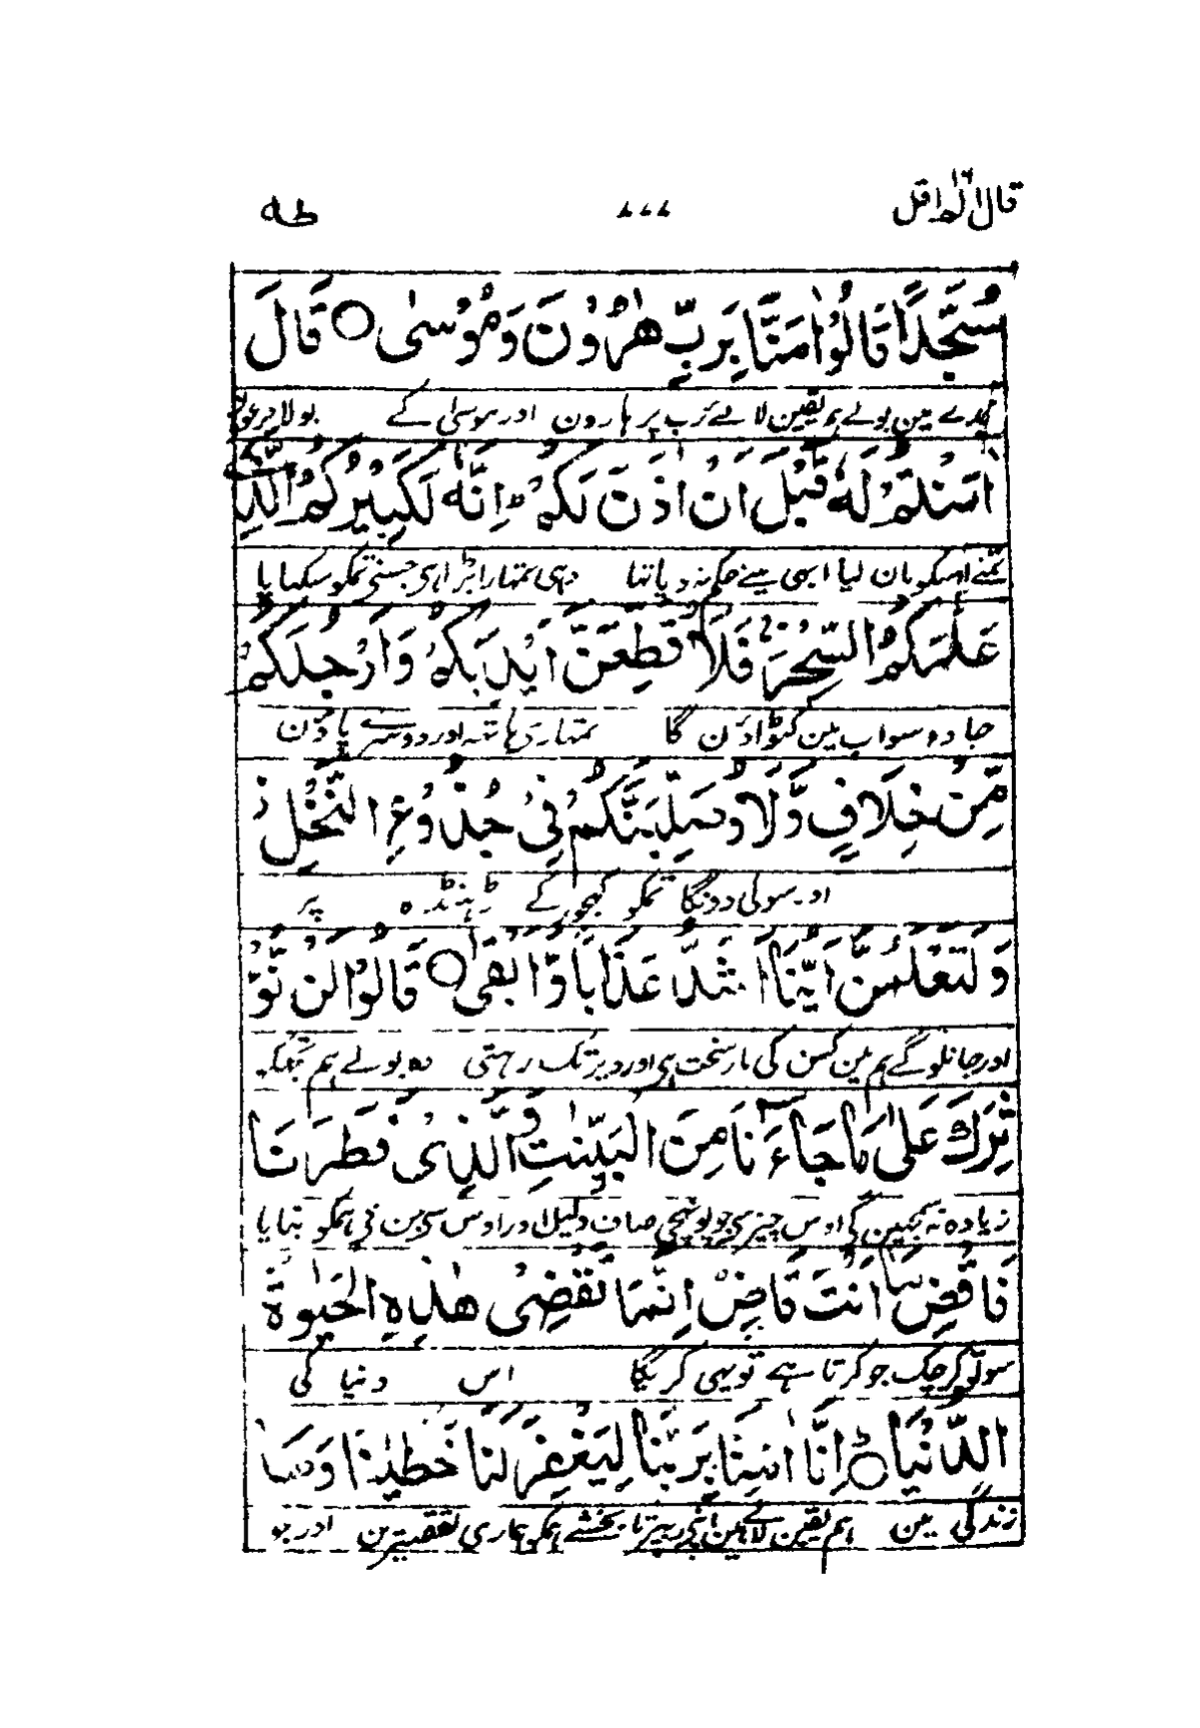 قال الم اقل ١٦
٤٤٤
طه
سُجَّدًا قَالُوْۤا اٰمَنَّا بِرَبِّ هٰرُوْنَ وَمُوْسٰى ○ قَالَ
سجدے مین بولے ہم یقین لائے رب پر ہارون اور موسیٰ کے بولا فرعون
اٰمَنْتُمْ لَهٗ قَبْلَ اَنْ اٰذَنَ لَكُمْ ؕ اِنَّهٗ لَكَبِيْرُكُمُ الَّذِيْ
تمنے اسکو مان لیا ابھی مینے حکم نہ دیا تھا وہی تمہارا بڑا ہی جسنے تمکو سکھایا
عَلَّمَكُمُ السِّحْرَ ۚ فَلَاُقَطِّعَنَّ اَيْدِيَكُمْ وَاَرْجُلَكُمْ
جادو سو اب مین کٹواؤن گا تمہاری ہاتہ اور دوسرے پاؤن
مِّنْ خِلَافٍ وَّلَاُوصَلِّبَنَّكُمْ فِيْ جُذُوْعِ النَّخْلِ ز
اور سولی دونگا تمکو کھجور کے ٹہنڈہ پر
وَلَتَعْلَمُنَّ اَيُّنَاۤ اَشَدُّ عَذَابًا وَّاَبْقٰى ○ قَالُوْا لَنْ نُّؤْ
اور جانلوگے ہم مین کسن کی مار سخت ہی اور دیر تک رہتی وہ بولے ہم تجکو
ثِرَكَ عَلٰى مَا جَآءَنَا مِنَ الْبَيِّنٰتِ وَالَّذِيْ فَطَرَنَا
زیادہ نہ سمجہین گے اوس چیز سی جو پونہچی صاف دلیل اور اوس سی جن نی ہمکو بنایا
فَاقْضِ مَاۤ اَنْتَ قَاضٍ ؕ اِنَّمَا تَقْضِيْ هٰذِهِ الْحَيٰوةَ
سو تو کر چک جو کرتا ہے تو یہی کریگا اس دنیا کی
الدُّنْيَا ○ ؕ اِنَّاۤ اٰمَنَّا بِرَبِّنَا لِيَغْفِرَ لَنَا خَطٰيٰنَا وَمَاۤ
زندگی مین ہم یقین لائے ہین اپنے رب پر تا بخشے ہمکو ہماری تقصیرین اور جو